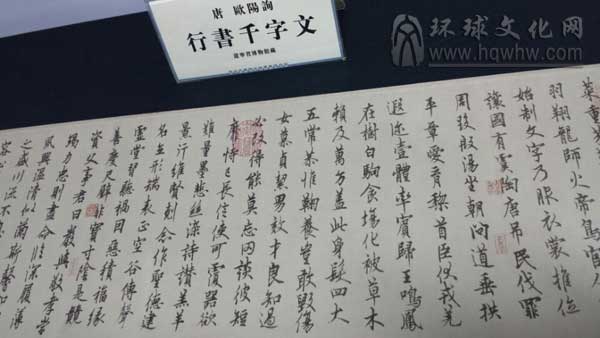 环球文化网
www.hqwhw.com
唐 歐陽詢
行書千字文
遼寧省博物館藏
菜重
羽翔龍師火帝鳥官人
始制文字乃服衣裳推位
讓國有虞陶唐吊民伐罪
周發殷湯坐朝問道垂拱
平章愛育黎首臣伏戎羌
遐迩壹體率賓歸王鳴鳳
在樹白駒食場化被草木
賴及萬方盖此身髮四大
五常恭惟鞠養豈敢毀傷
女慕貞潔男效才良知過
必改得能莫忘罔談彼短
靡恃己長信使可覆器欲
難量墨悲絲染詩讃羔羊
景行維賢剋念作聖德建
名立形端表正空谷傳聲
虛堂習聽禍因惡積福緣
善慶尺璧非寶寸陰是競
資父事君曰嚴與敬孝當
竭力忠則盡命臨深履薄
夙興温凊似蘭斯馨如
之盛川流不